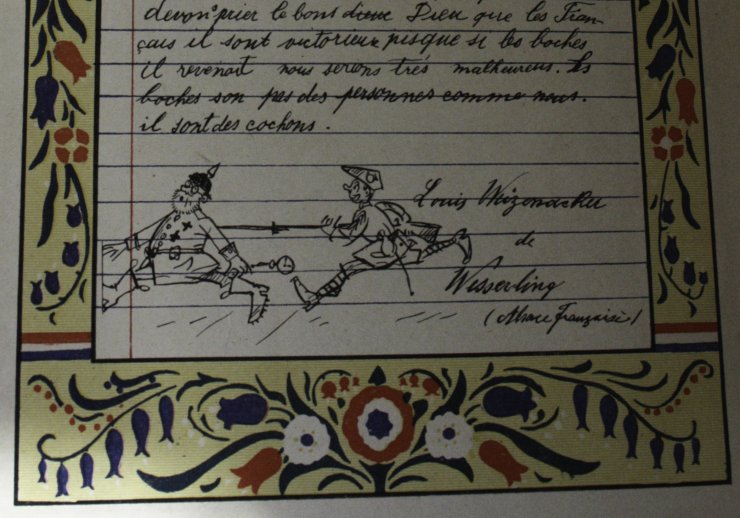 devon prier le bons dieue Dieu que les Fran-
çais il sont victorieux pisque si les boches
il revenait nous serions très malheureux. les
boches son pas des personnes comme nous.
il sont des cochons.
Louis Weizenacker
de
Wesserling
(Alsace Française)